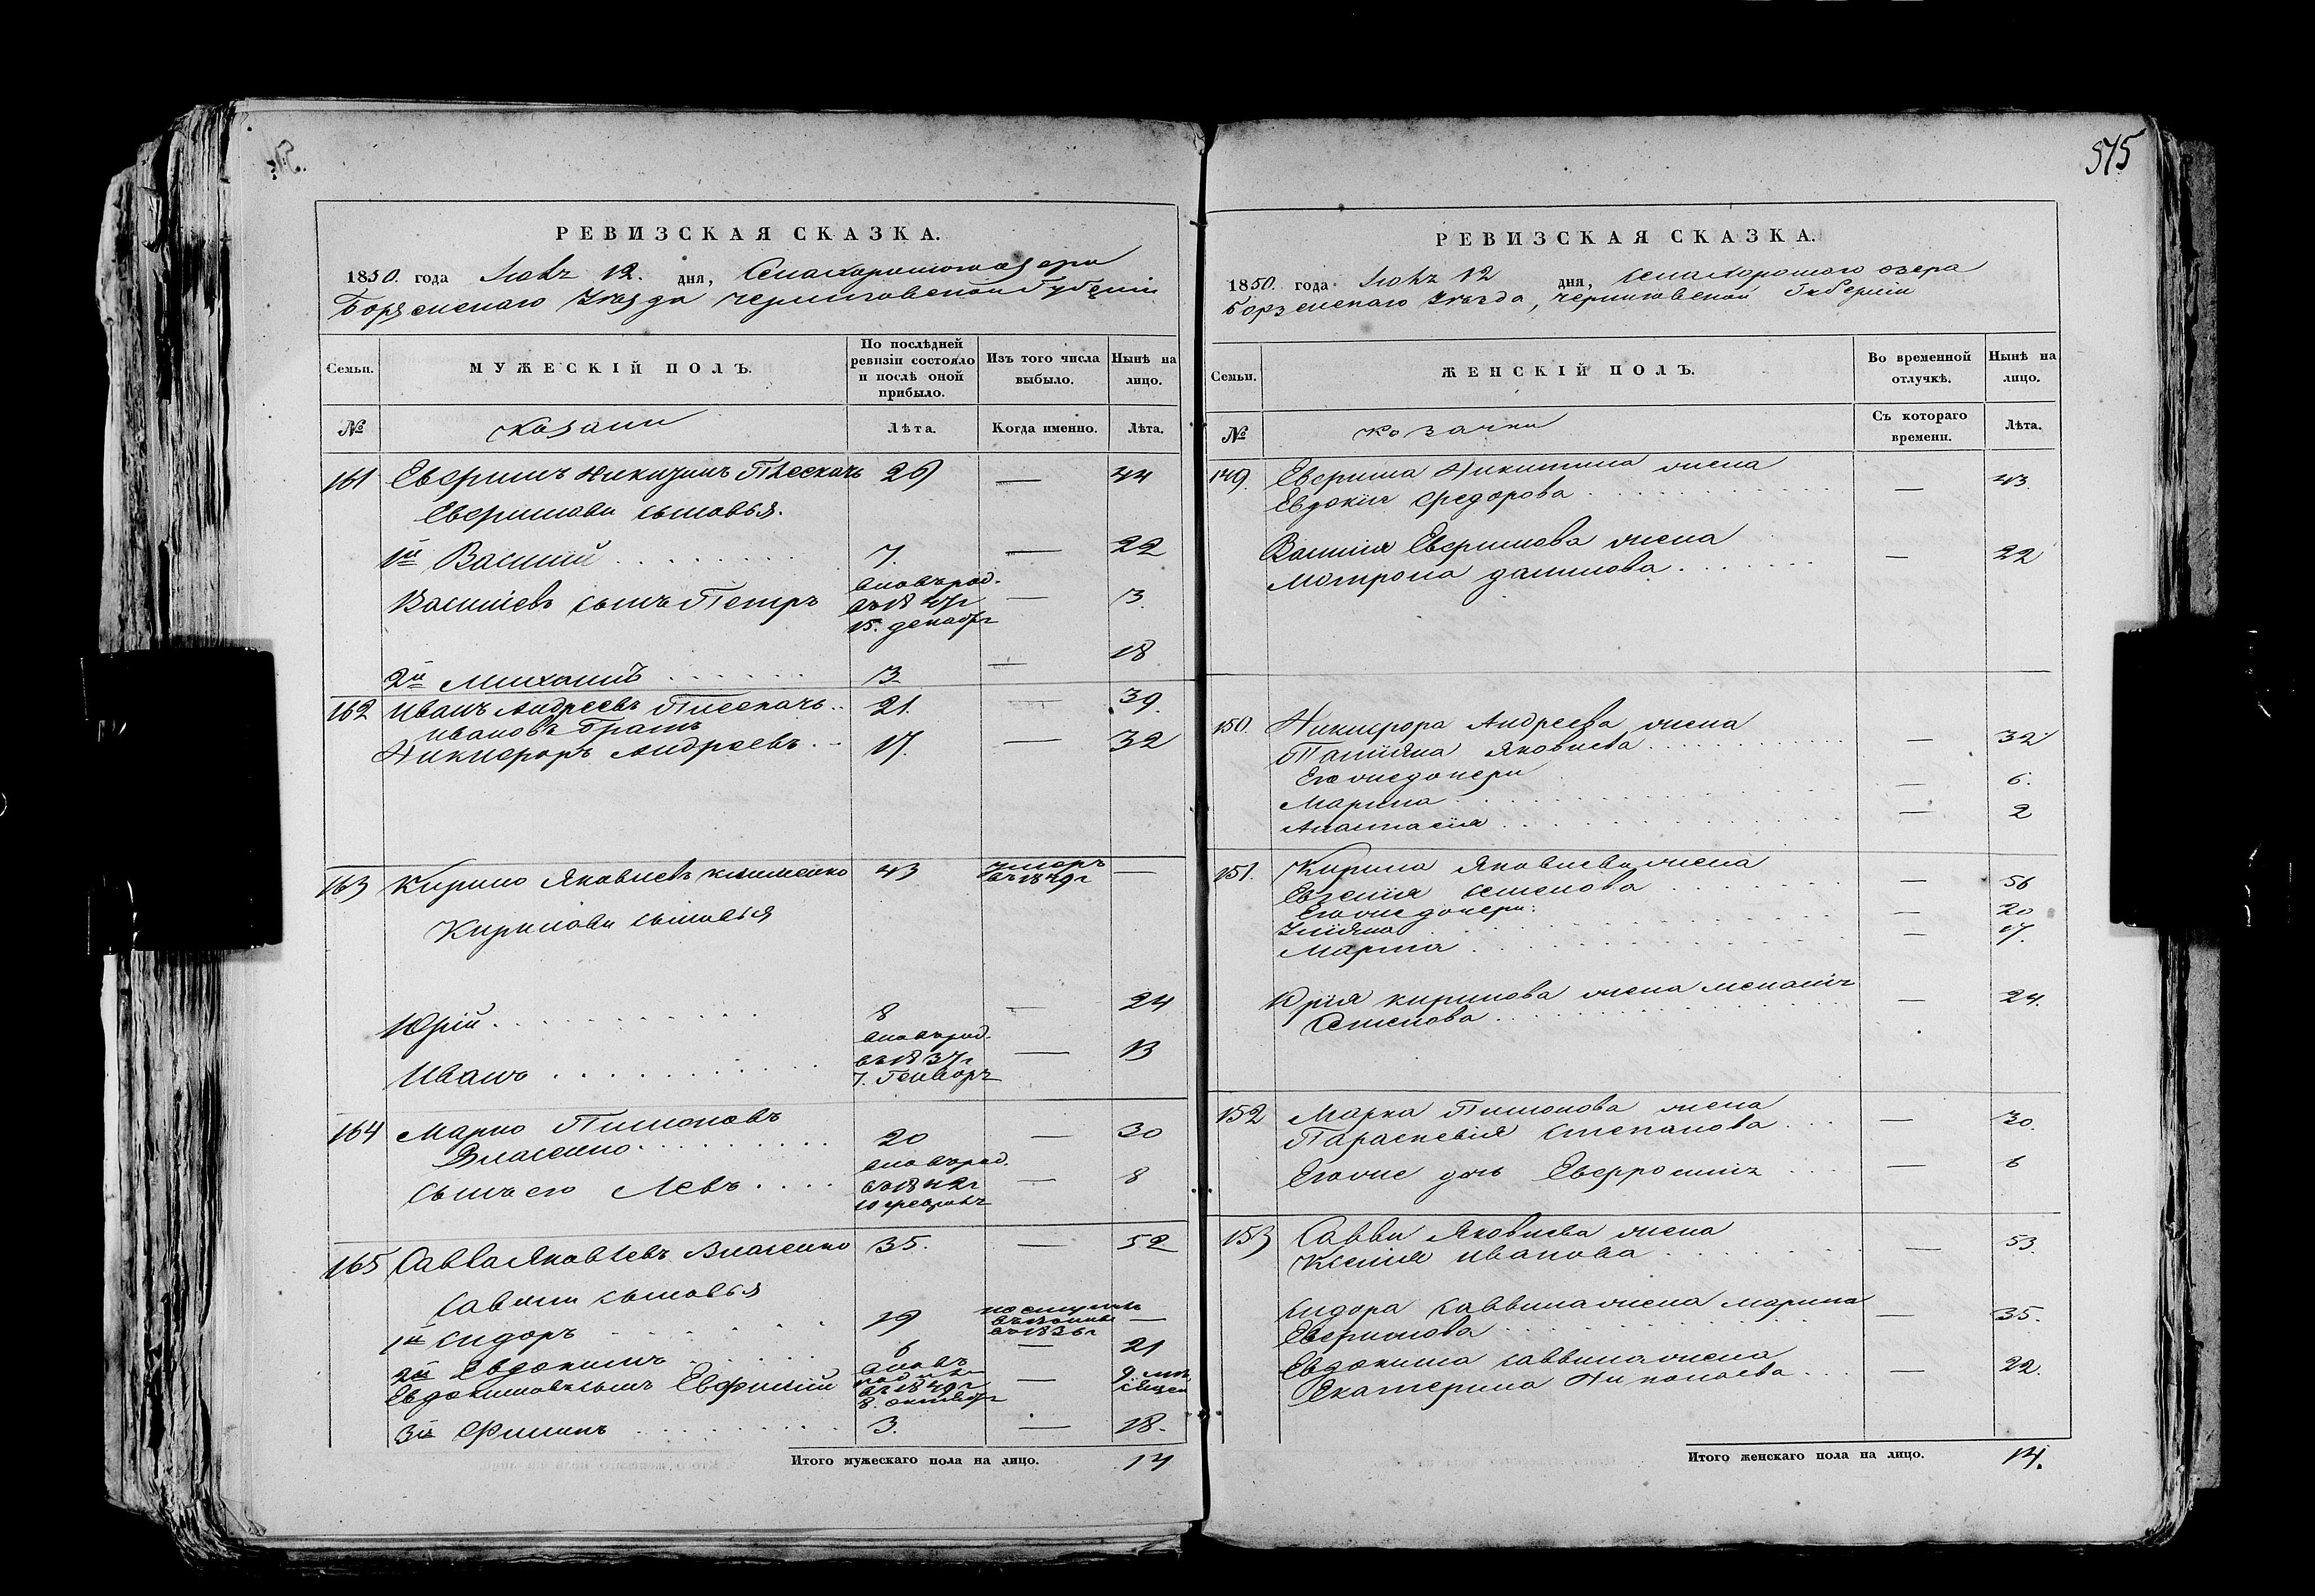 575
РЕВИЗСКАЯ СКАЗКА.
1850. года Июля 12. дня, Села Хорошого Озера
Борзенскаго Уѣзда Черниговской Губерніи
Семьи. МУЖЕСКІЙ ПОЛЪ. По послѣдней ревизіи состояло и послѣ оной прибыло. Изъ того числа выбыло. Нынѣ на лицо.
№ Козаки Лѣта. Когда именно. Лѣта.
161 Евфимъ Никитинъ 26 — 44
Евфимови сыновья.
1й Василий 7. — 22
Васильевъ сынъ Петръ вновь род. въ 1847г 15. декабря — 3.
2й Михаилъ 3 — 18
162 Иванъ Андреевъ 21. — 39.
Ивановъ Братъ
Никифоръ Андреевъ 17. — 32
163 Кирило Яковлевъ Клименко 43 умеръ въ 1849г —
Кирилови сыновья
Юрій 8 — 24
Иванъ вновь род. въ 1837г 7. Генваря — 13
164 Марко Пимоновъ
Власенко 20 — 30
Сынъ его Левъ вновь род. въ 1842г 10 февраля — 8
165 Савва Яковлевъ Власенко 35. — 52
Саввины сыновья
1й Сидоръ 19 въ 1836г —
2й Евдокимъ 6 — 21
Евдокимовъ сынъ Евфимій вновь въ 1849г 8. октября — 9.
3й Филипъ 3. — 18.
Итого мужескаго пола на лицо. 14
РЕВИЗСКАЯ СКАЗКА.
1850. года Июля 12 дня, Села Хорошого озера
Борзенскаго Уѣзда, Черниговской Губерніи
Семьи. ЖЕНСКІЙ ПОЛЪ. Во временной отлучкѣ. Нынѣ на лицо.
№ Козачки Съ котораго времени. Лѣта.
149. Евфима Никитина жена
Евдокія Федорова — 43
Василія Евфимова жена
Мотрона Данилова — 22
150. Никифора Андреева жена
Татіяна Яковлева — 32
Его же дочери
Марина — 6.
Анастасія — 2
151. Кирила Яковлева жена
Евгенія Семенова — 56
Его же дочери:
Уліяна — 20
Марта — 17.
Юрія Кирилова жена Меланія
Семенова — 24.
152 Марка Пимонова жена
Параскевія Степанова — 30.
Его же дочь Евфросинія — 6
153 Саввы Яковлева жена
Ксенія Иванова — 53.
Сидора Саввина жена Марина
Евфимова — 35.
Евдокима Саввина жена
Екатерина Николаева — 22.
Итого женскаго пола на лицо. 14.